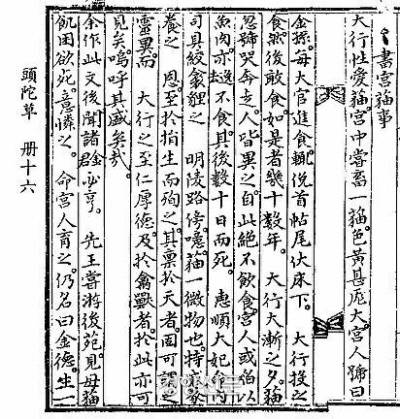 書宮猫事
大行性愛猫宮中嘗畜一猫色黃甚厖大宮人號曰
金孫每大官進食輒俛首帖尾伏床下 大行投之
食然後敢食如是者幾十數年 大行大漸之夕猫
忽號哭奔走人皆異之自此絶不飮食宮人或餉以
魚肉亦避不食其後數十日而死 惠順大妃 內
司具絞衾貍之 明陵路傍噫猫一微物也特 豢
養之 恩至於捐生而殉之其禀於天者固可謂之
靈異而 大行之至仁厚德及於禽獸者於此亦可
見矣嗚呼其盛矣哉
余作此文後聞諸 必亨 先王嘗游後苑見母猫
飢困欲死意憐之 命宮人育之仍名曰金德生一
頭陀草 册十六